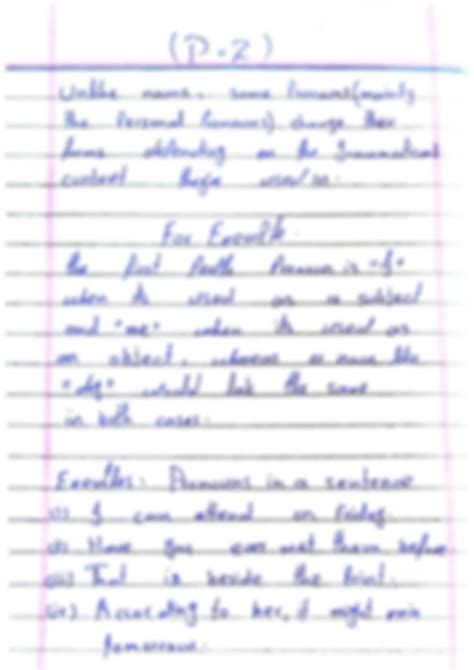 (P.2)
Unlike nouns, some Pronouns (mainly
the Personal Pronouns) change their
forms depending on the Grammatical
context they're used in.
For Example:
the first Pronoun is "I"
when its used as a subject
and "me" when its used as
an object, whereas a noun like
"dog" would look the same
in both cases.
Examples: Pronouns in a sentence
(i) I can attend on Friday.
(ii) Have you ever met them before
(iii) That is beside the Point.
(iv) According to her, it might rain
tomorrow.